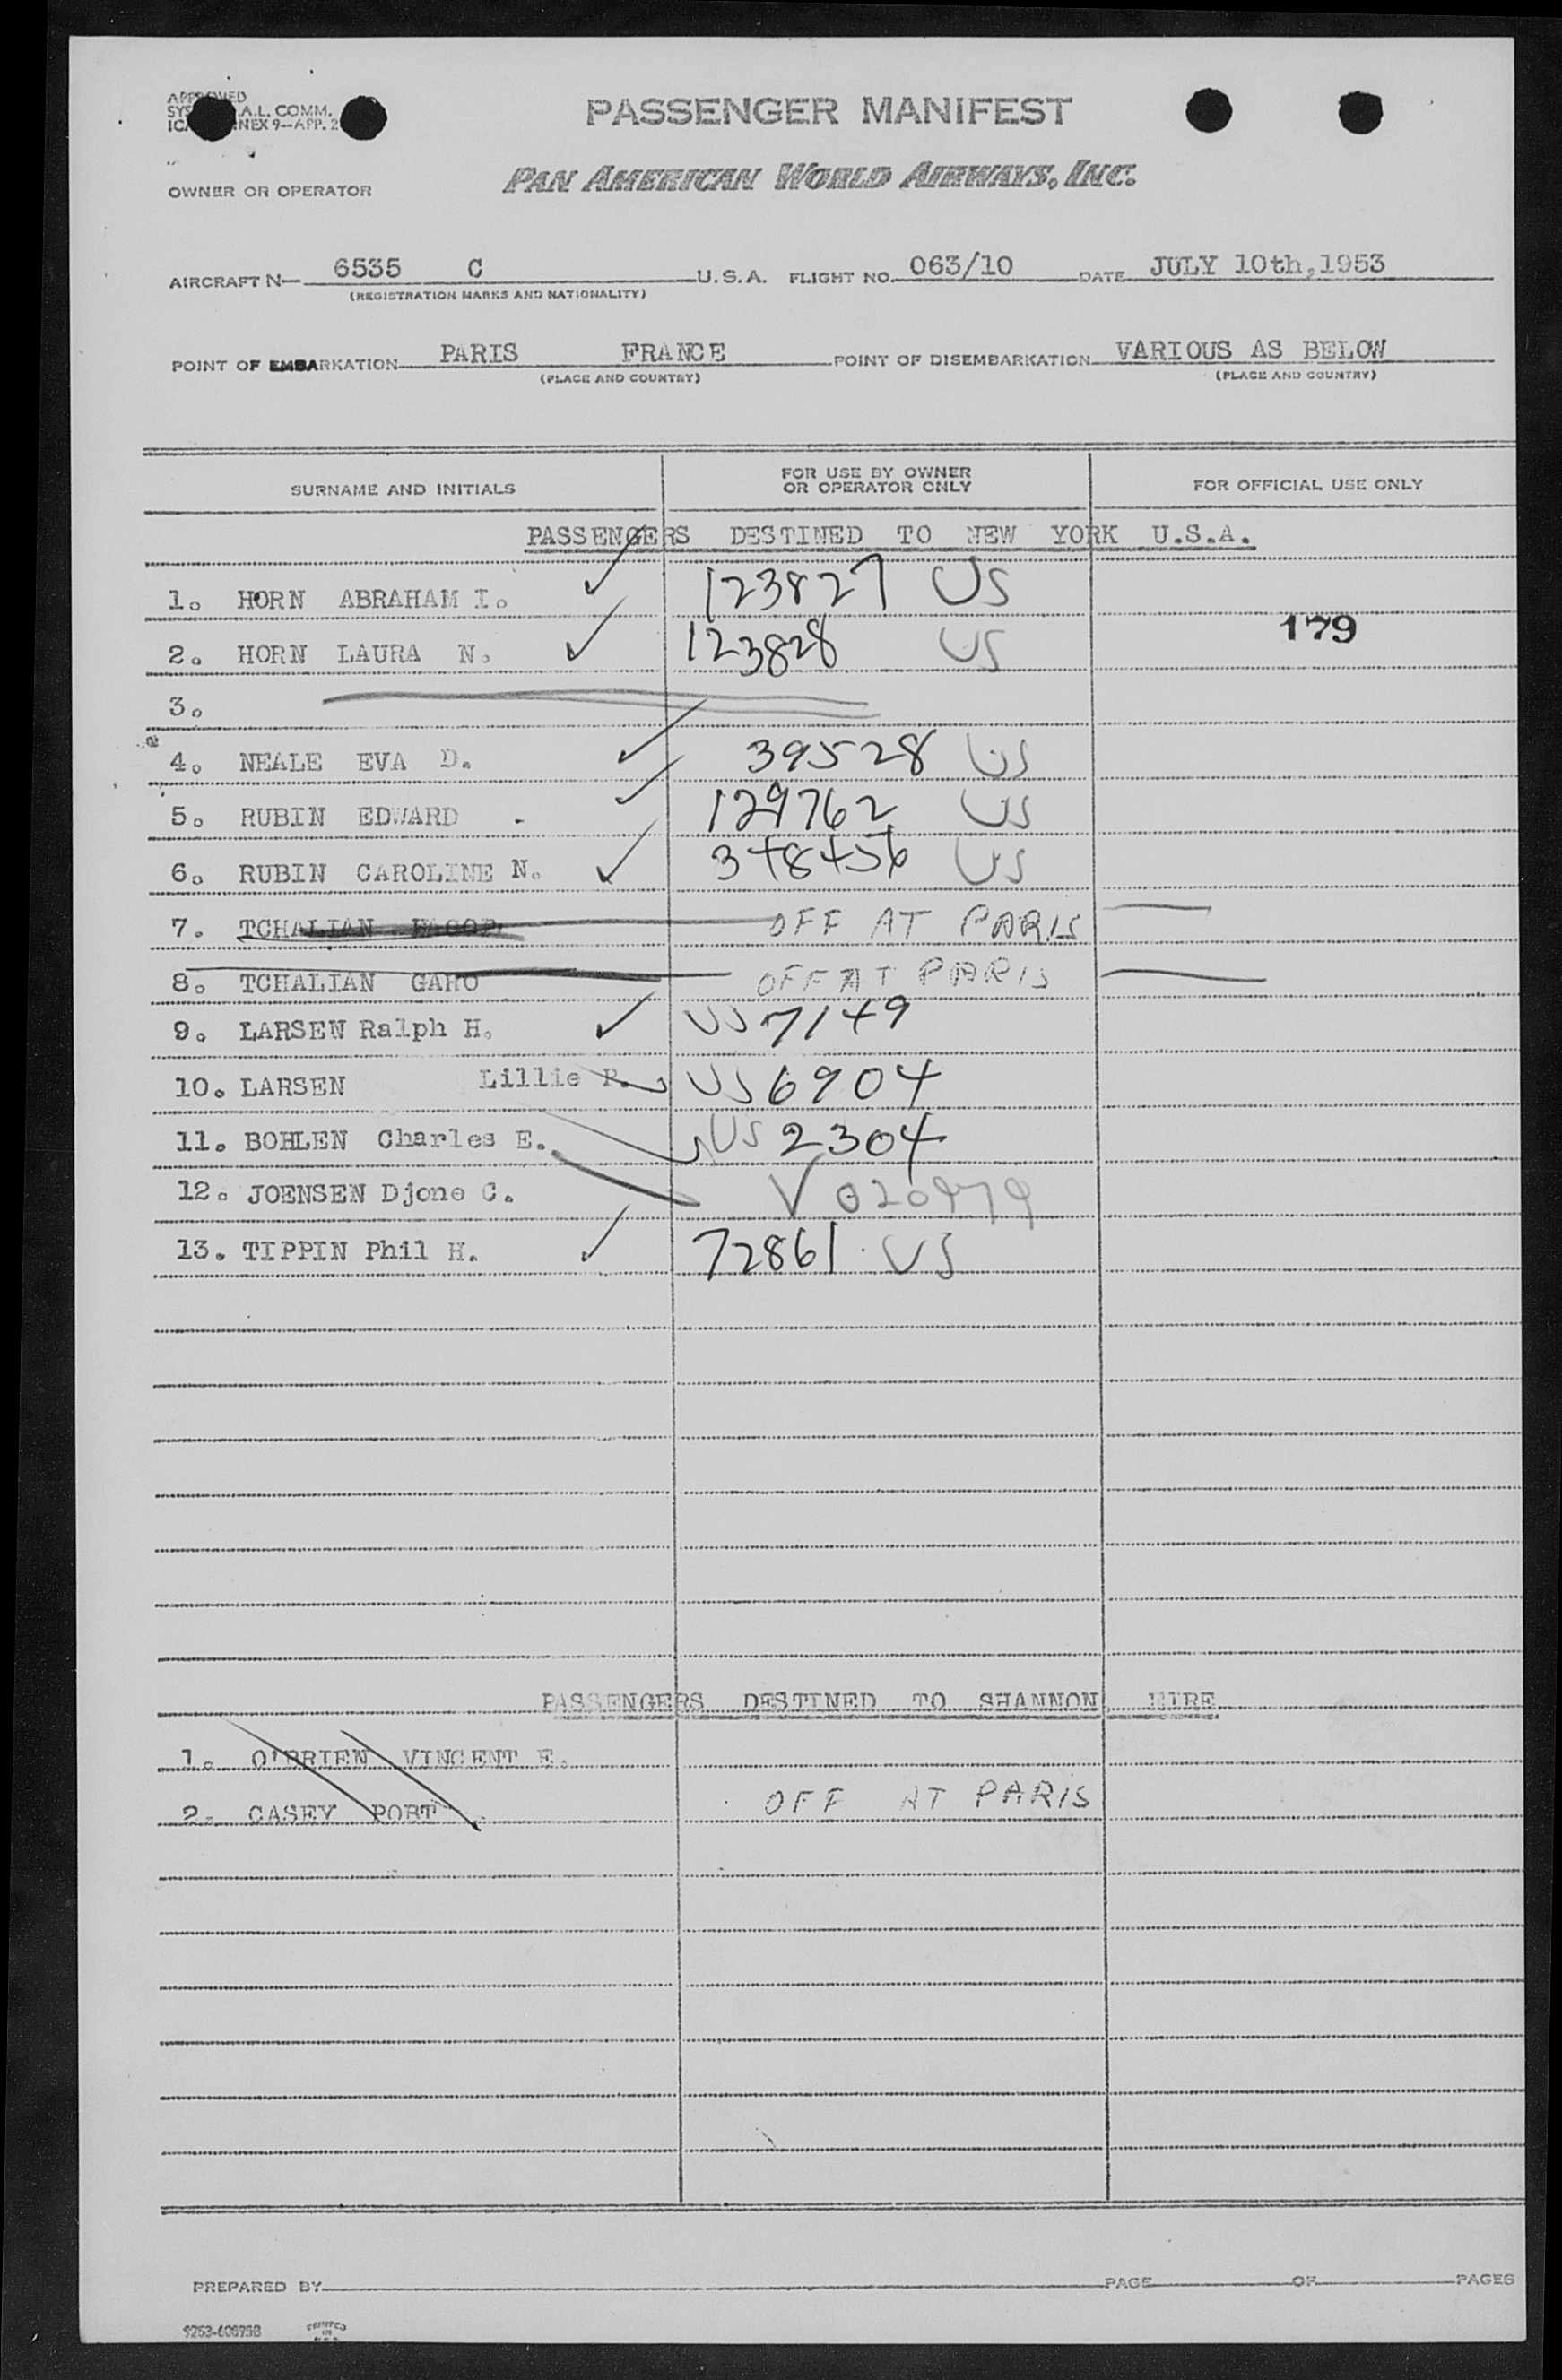 PASSENGER MANIFEST
A.L. COMM.
NEX 9—APP. 2
PAN AMERICAN WORLD AIRWAYS, INC.
OWNER OR OPERATOR
AIRCRAFT N— 6535 C U.S.A. FLIGHT NO. 063/10 DATE JULY 10th, 1953
(REGISTRATION MARKS AND NATIONALITY)
POINT OF EMBARKATION PARIS FRANCE POINT OF DISEMBARKATION VARIOUS AS BELOW
(PLACE AND COUNTRY) (PLACE AND COUNTRY)
SURNAME AND INITIALS FOR USE BY OWNER OR OPERATOR ONLY FOR OFFICIAL USE ONLY
PASSENGERS DESTINED TO NEW YORK U.S.A.
1. HORN ABRAHAM I. 123827 US
179
2. HORN LAURA N. 123828 US
3.
4. NEALE EVA D. 39528 US
5. RUBIN EDWARD 129762 US
6. RUBIN CAROLINE N. 348456 US
7. TCHALIAN OFF AT PARIS
8. TCHALIAN GARO OFF AT PARIS
9. LARSEN Ralph H. US 7149
10. LARSEN Lillie P. US 6904
11. BOHLEN Charles E. US 2304
12. JOENSEN Djone C. V 020979
13. TIPPIN Phil H. 72861 US
PASSENGERS DESTINED TO SHANNON, EIRE
1. O'BRIEN VINCENT E.
2. CASEY ROBT OFF AT PARIS
PREPARED BY PAGE OF PAGES
PRINTED
IN